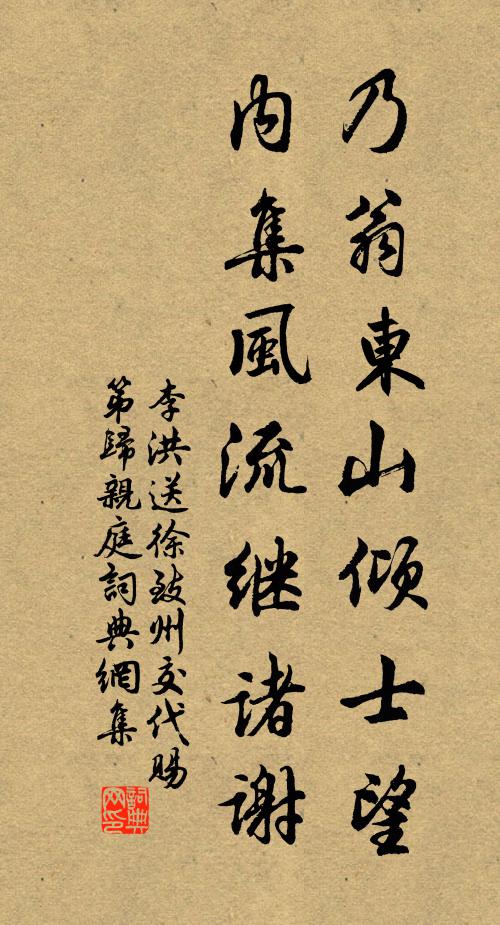 乃翁東山傾士望
内集風流继諸谢
李洪送徐致州交代赐
第歸親庭詞典網集
詞典网印